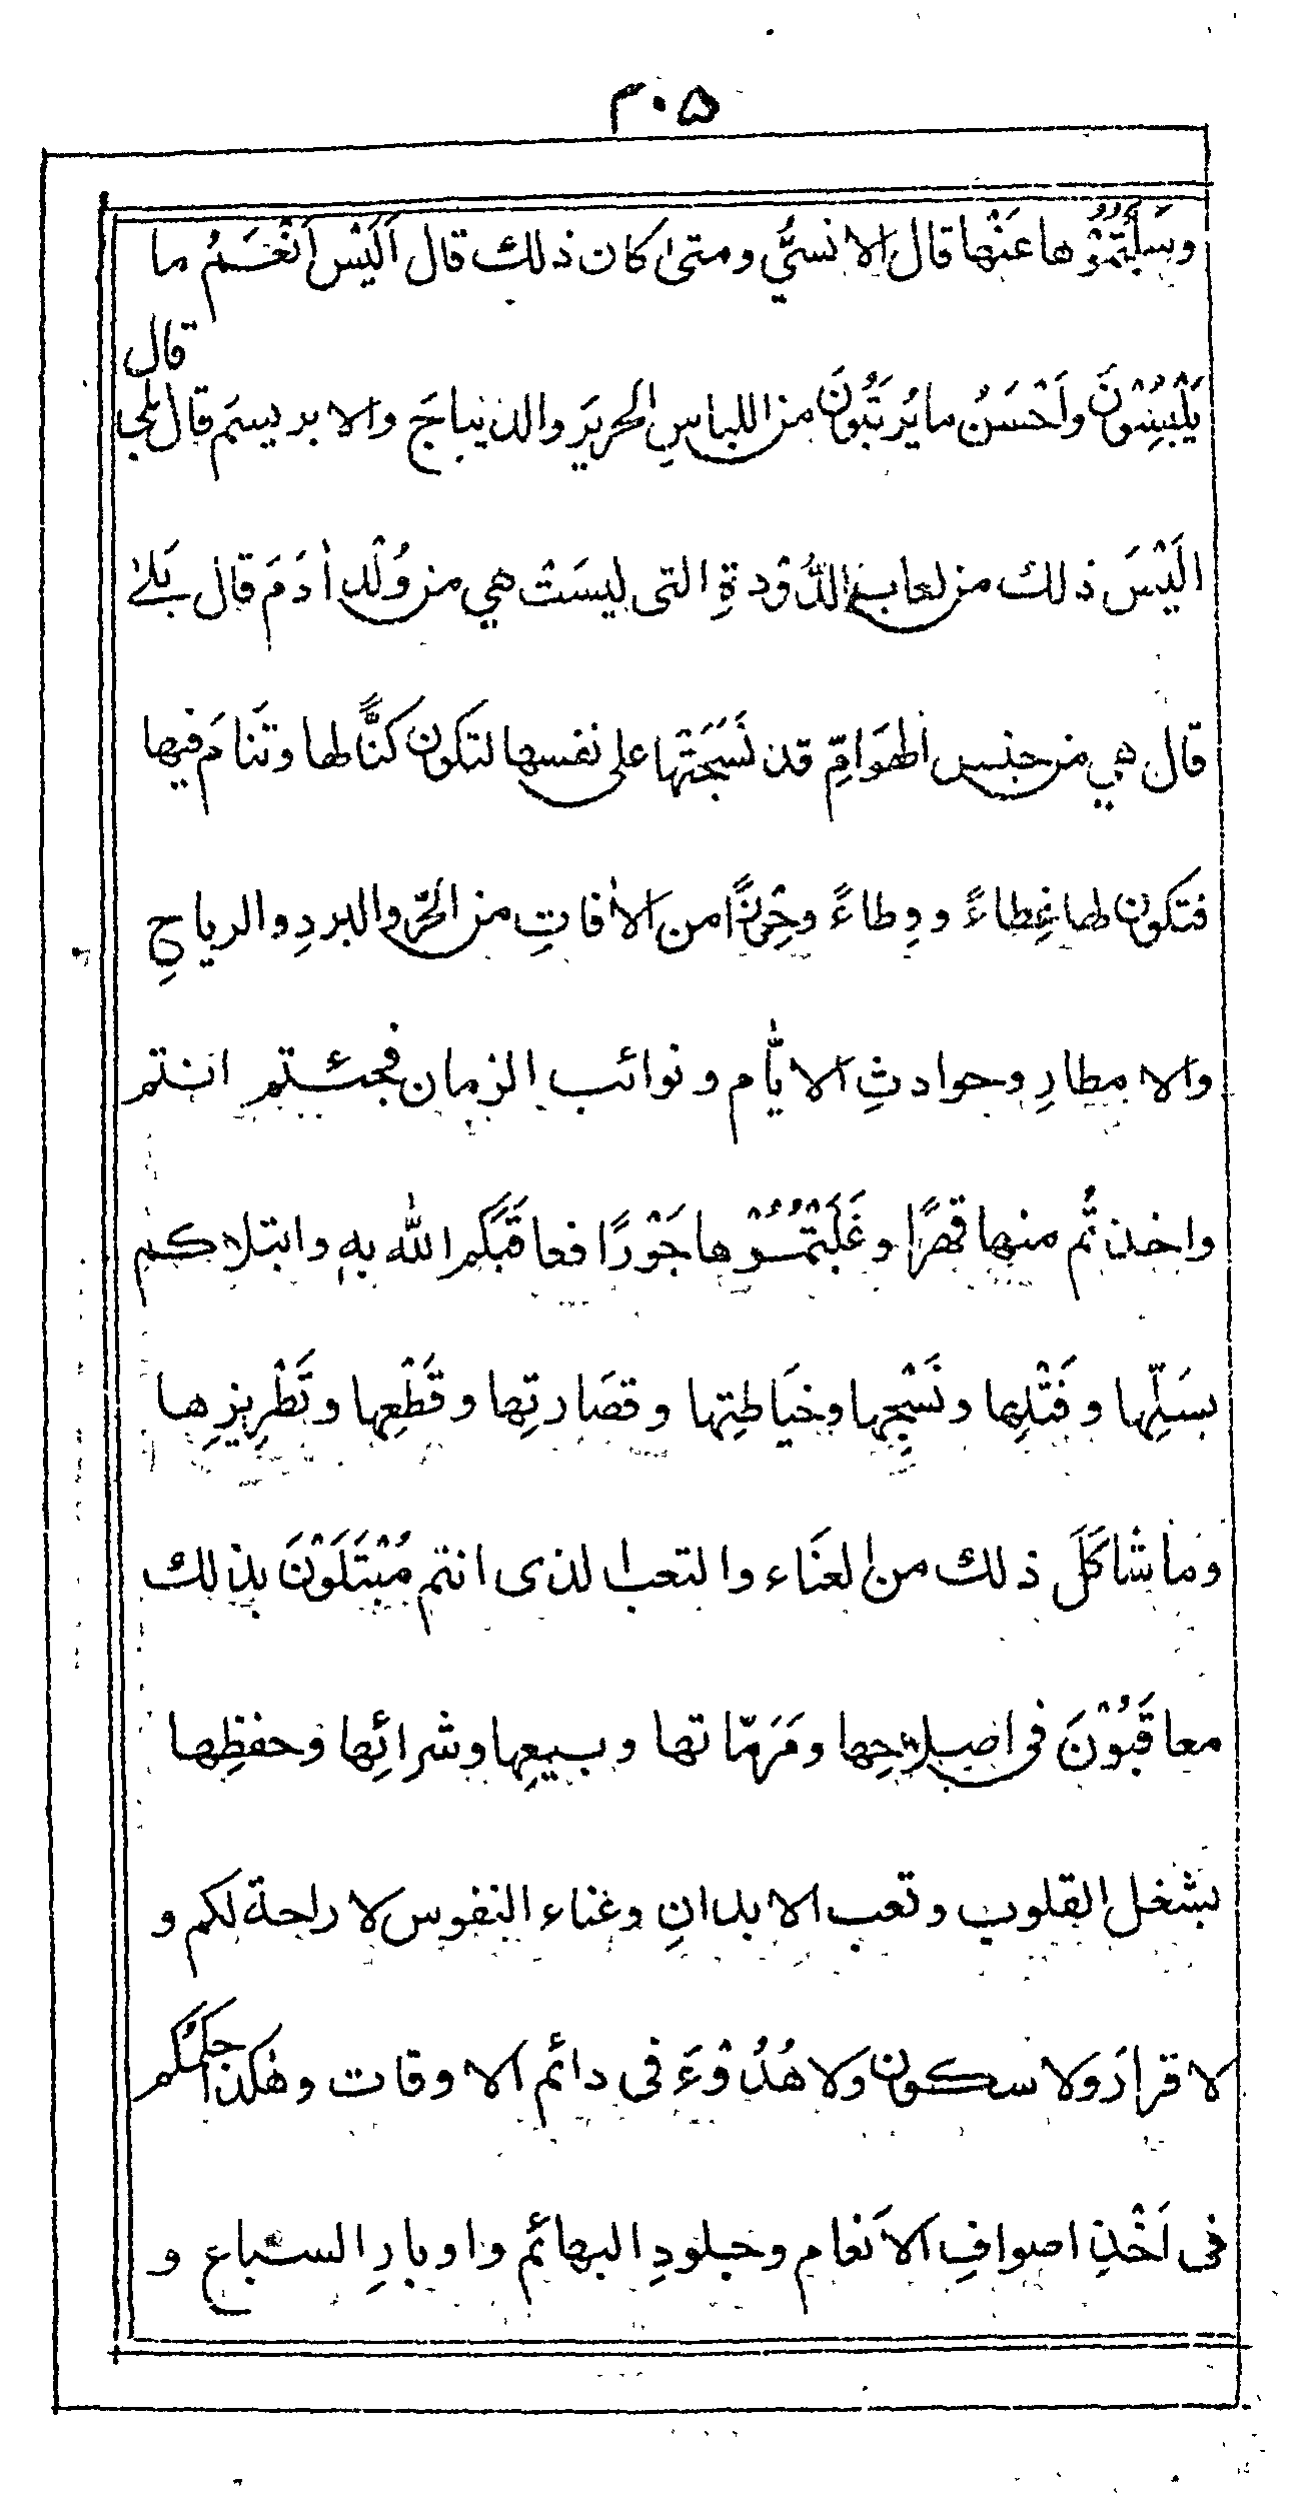 ٣٠۵
وسَلَبْتُمُوْها عَنْها قال الانسيُّ ومتىٰ كان ذلك قال اَلَيْس اَنْعَمُ ما
يَلْبِسُوْنَ واَحْسَنُ ما يُرتَبُونَ من اللباسِ الحريرَ والديباجَ والابريسمَ قال بلى قال
اليْسَ ذلك من لعابِ الدُّوْدةِ التى ليسَتْ هي من وُلْدِ اٰدَمَ قال بَلىٰ
قال هي من جنس الهوَامِّ قد نَسَجَتْها على نفسها لتكون كنًّا لها وتَنامَ فيها
فتكون لها غِطاءً ووِطاءً وحِرْزًا من الاٰفاتِ من الحَرِّ والبردِ والرياحِ
والامطارِ وحوادثِ الايّام ونوائب الزمان فجئتم انتم
واخذتُم منها قهرًا وغَلَبْتُمُوْها جَوْرًا فعاقَبَكم اللّٰه بهٖ وابتلاكم
بسَلِّها وفَتْلِها ونَسْجِها وخيَاطتِها وقصَارتِها وقَطْعِها وتَطْرِيزِها
وما شاكَلَ ذلك من العنَاء والتعب الذى انتم مُبْتَلَوْنَ بذلك
معاقَبُوْنَ فى اصلاحِها ومَرَمّاتها وبيعِها وشرائِها وحفظِها
بشغل القلوب وتعب الابدانِ وعناء النفوس لا راحة لكم و
لا قرارَ ولا سكون ولا هُدُوْءَ فى دائم الاوقات وهٰكذا حكمُكم
فى اَخْذِ اصوافِ الاَنعام وجلودِ البهائم واوبارِ السباع و